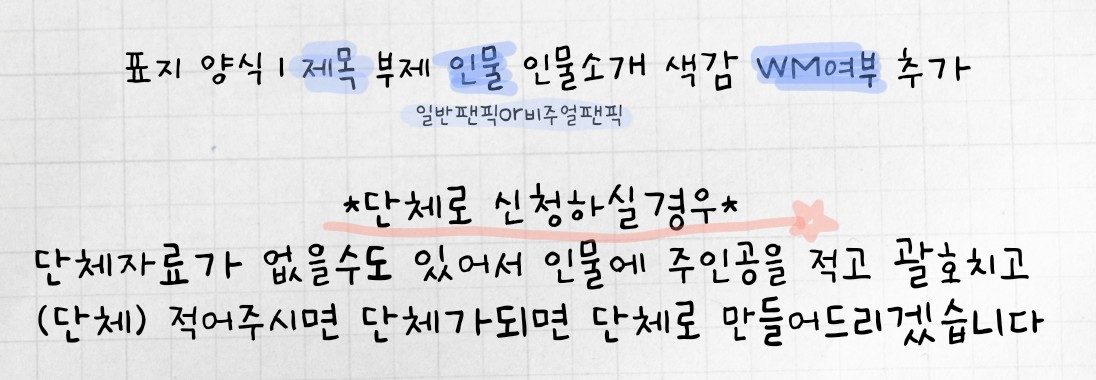 표지 양식 | 제목 부제 인물 인물소개 색감 WM여부 추가
일반팬픽or비주얼팬픽
*단체로 신청하실경우*
단체자료가 없을수도 있어서 인물에 주인공을 적고 괄호치고
(단체) 적어주시면 단체가되면 단체로 만들어드리겠습니다